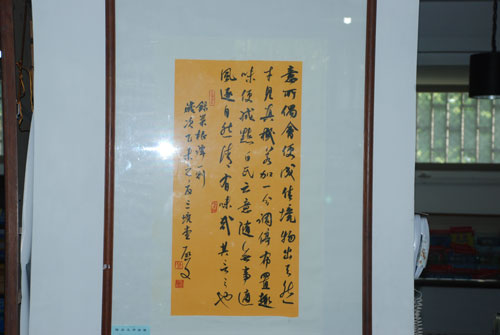 意所偶會便成佳境物出天然
才見真機若加一分調停布置趣
味便減白氏云意隨無事適
風逐自然清有味哉其言之也
錄菜根譚一則
歲次未三槐堂